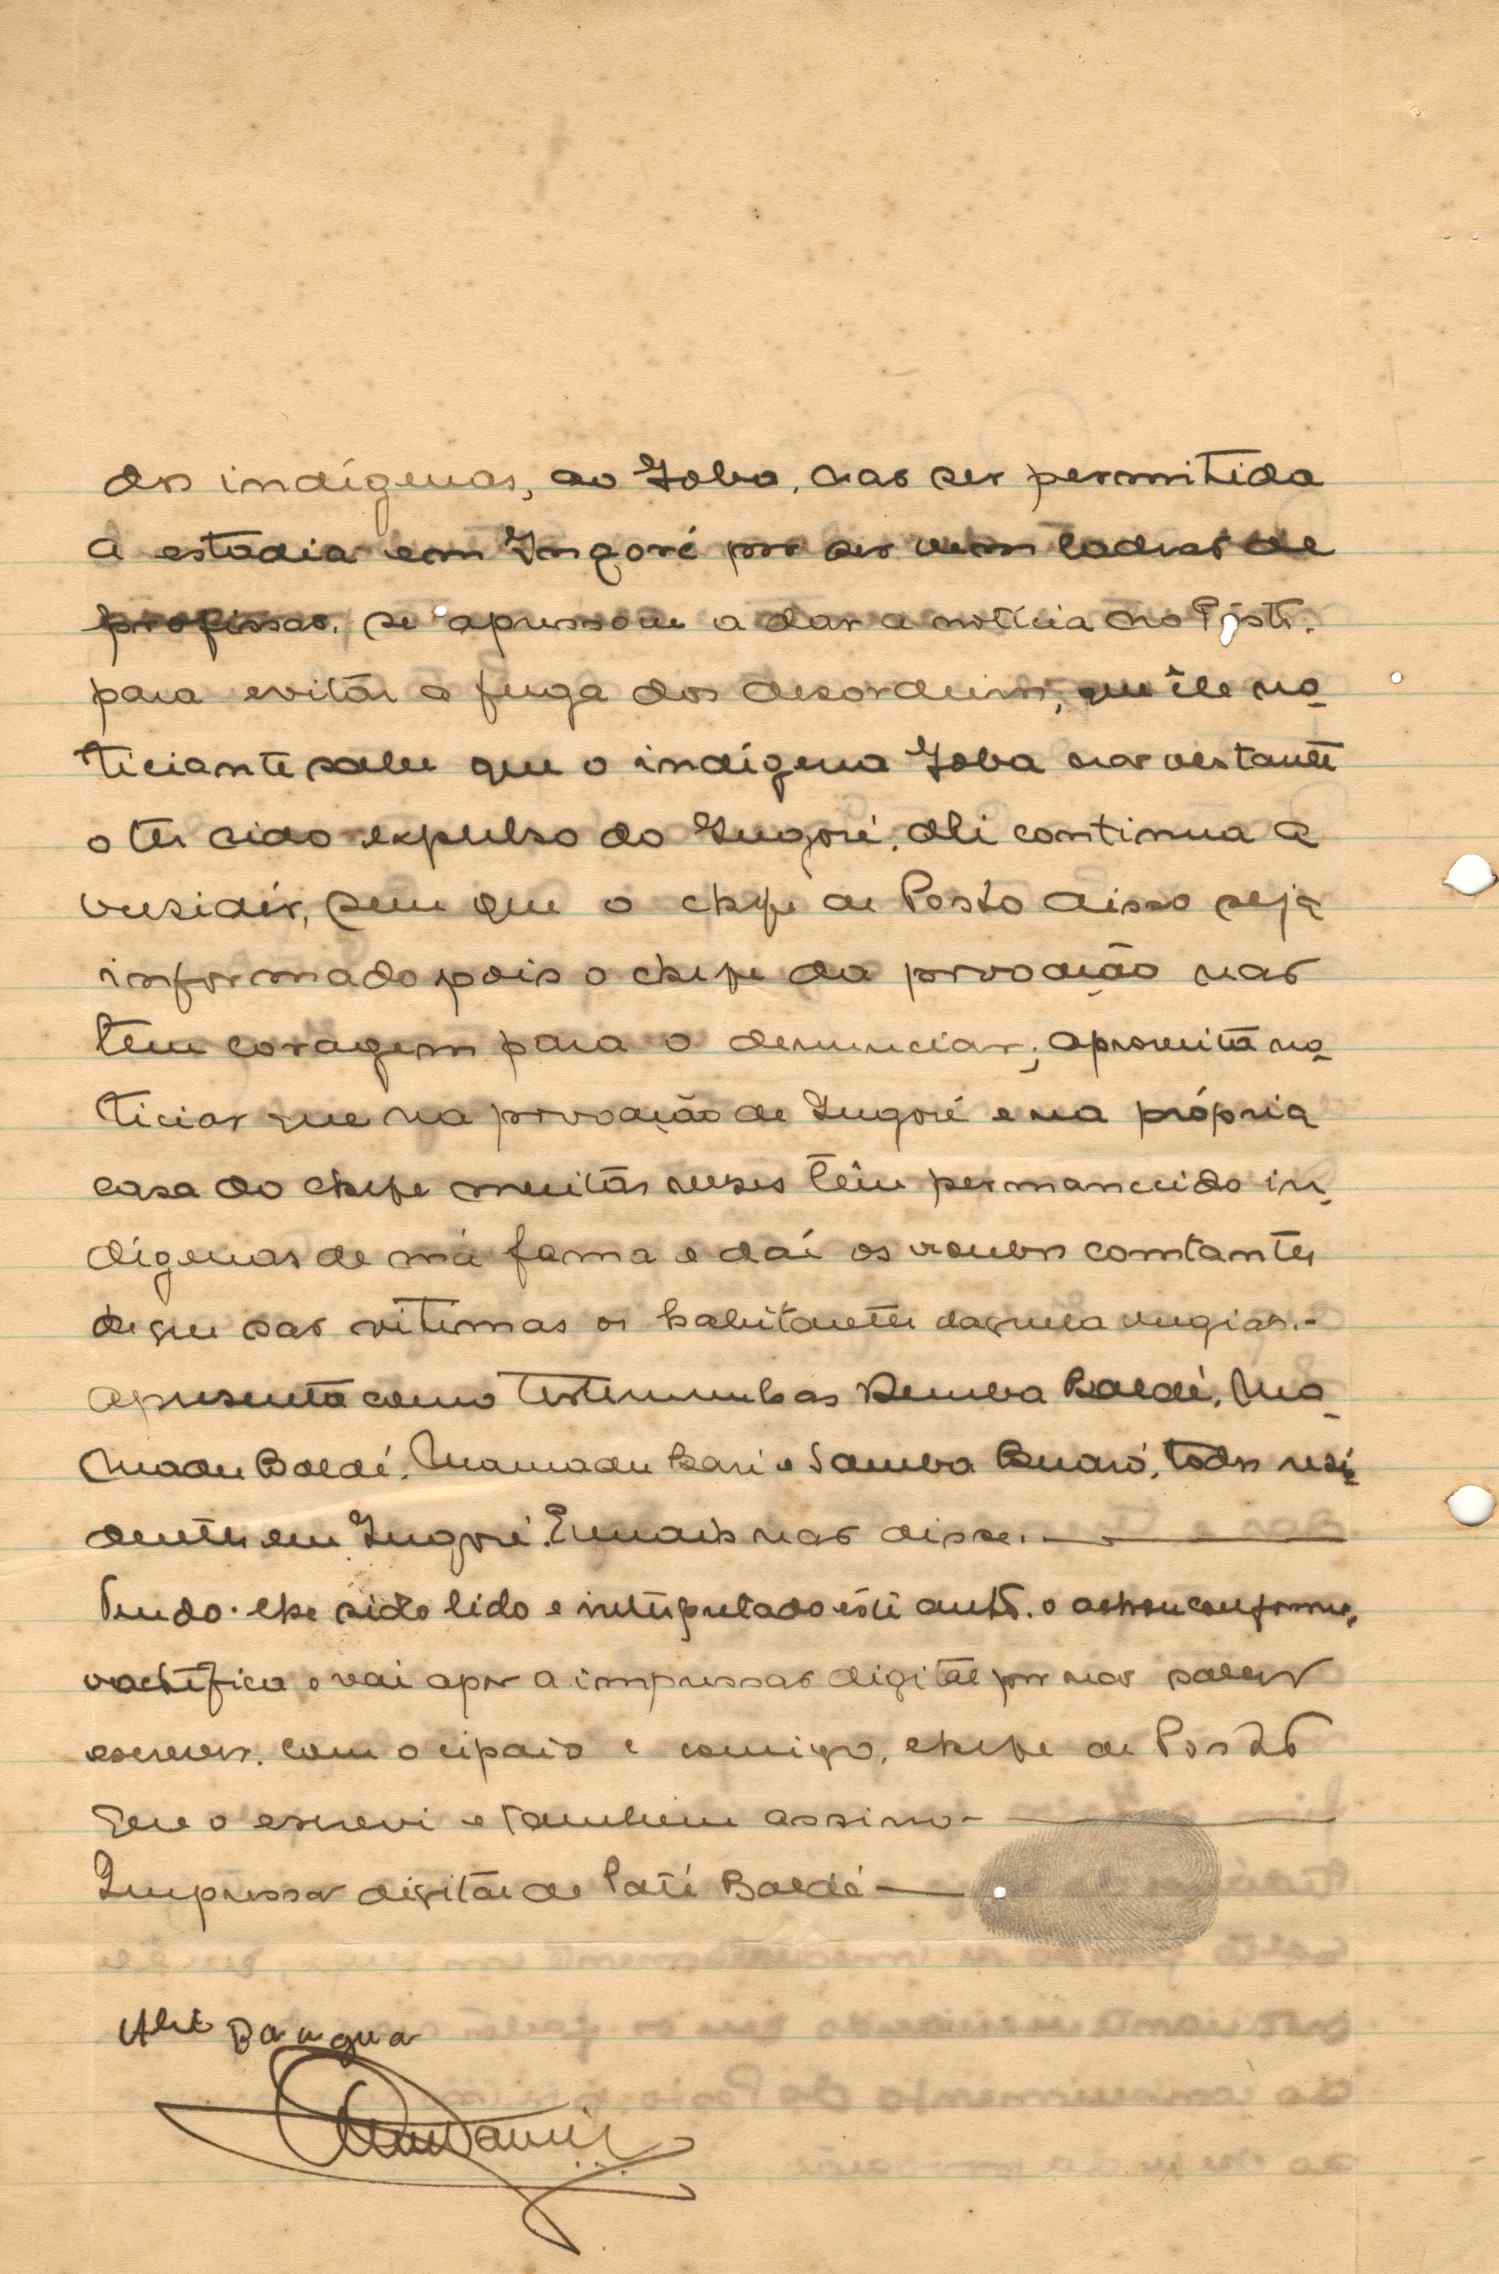 dos indígenas, ao Joba, não ser permitida
a estadia em Ingoré por ser um ladrão de
profissão, se apressou a dar a notícia no Pôsto,
para evitar a fuga dos desordeiros; que êle no-
ticiante sabe que o indígena Joba não obstante
o ter sido expulso do Ingoré, ali continua a
residir, sem que o chefe de Posto disso seja
informado pois o chefe da povoação não
tem coragem para o denunciar; aproveita no-
ticiar que na povoação de Ingoré e na própria
casa do chefe muitas vezes têm permanecido in-
dígenas de má fama e daí os roubos constantes
de que são vitimas os habitantes daquela região.-
Apresenta como testemunhas Demba Baldé, Ma-
madu Baldé, Mamadu Bari e Samba Buaró, todos resi-
dentes em Ingoré. E mais não disse.
Tendo-lhe sido lido e interpretado êste auto, o achou conforme,
ractifica e vai apor a impressão digital por não saber
escrever, com o cipaio e comigo, chefe de Posto
que o escrevi e tambem assino-
Impressão digital de Paté Baldé